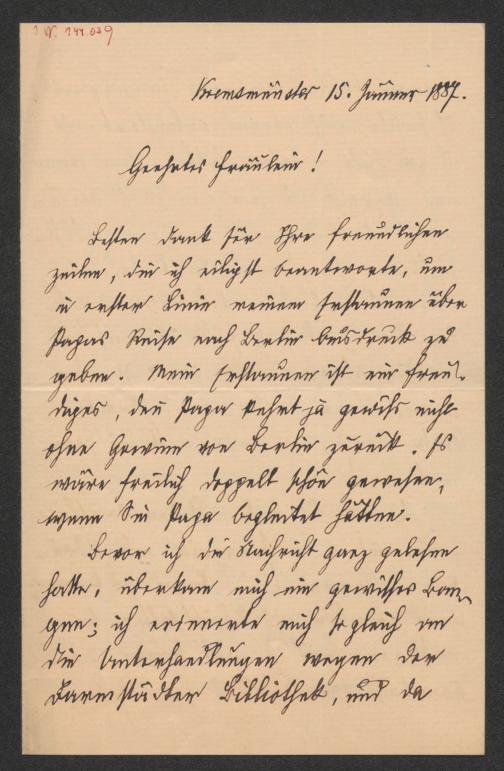 I. N. 144.039
Kremsmünster 15. Jänner 1887.
Geehrtes Fräulein!
Besten Dank für Ihre freundlichen
Zeilen, die ich eiligst beantworte, um
in erster Linie meinem Erstaunen über
Papas Reise nach Berlin Ausdruck zu
geben. Mein Erstaunen ist ein freu-
diges, denn Papa kehrt ja gewiß nicht
ohne Gewinn von Berlin zurück. Es
wäre freilich doppelt schön gewesen,
wenn Sie Papa begleitet hätten.
Bevor ich die Nachricht ganz gelesen
hatte, überkam mich ein gewisses Ban-
gen; ich erinnerte mich sogleich an
die Unterhandlungen wegen der
Darmstädter Bibliothek, und da